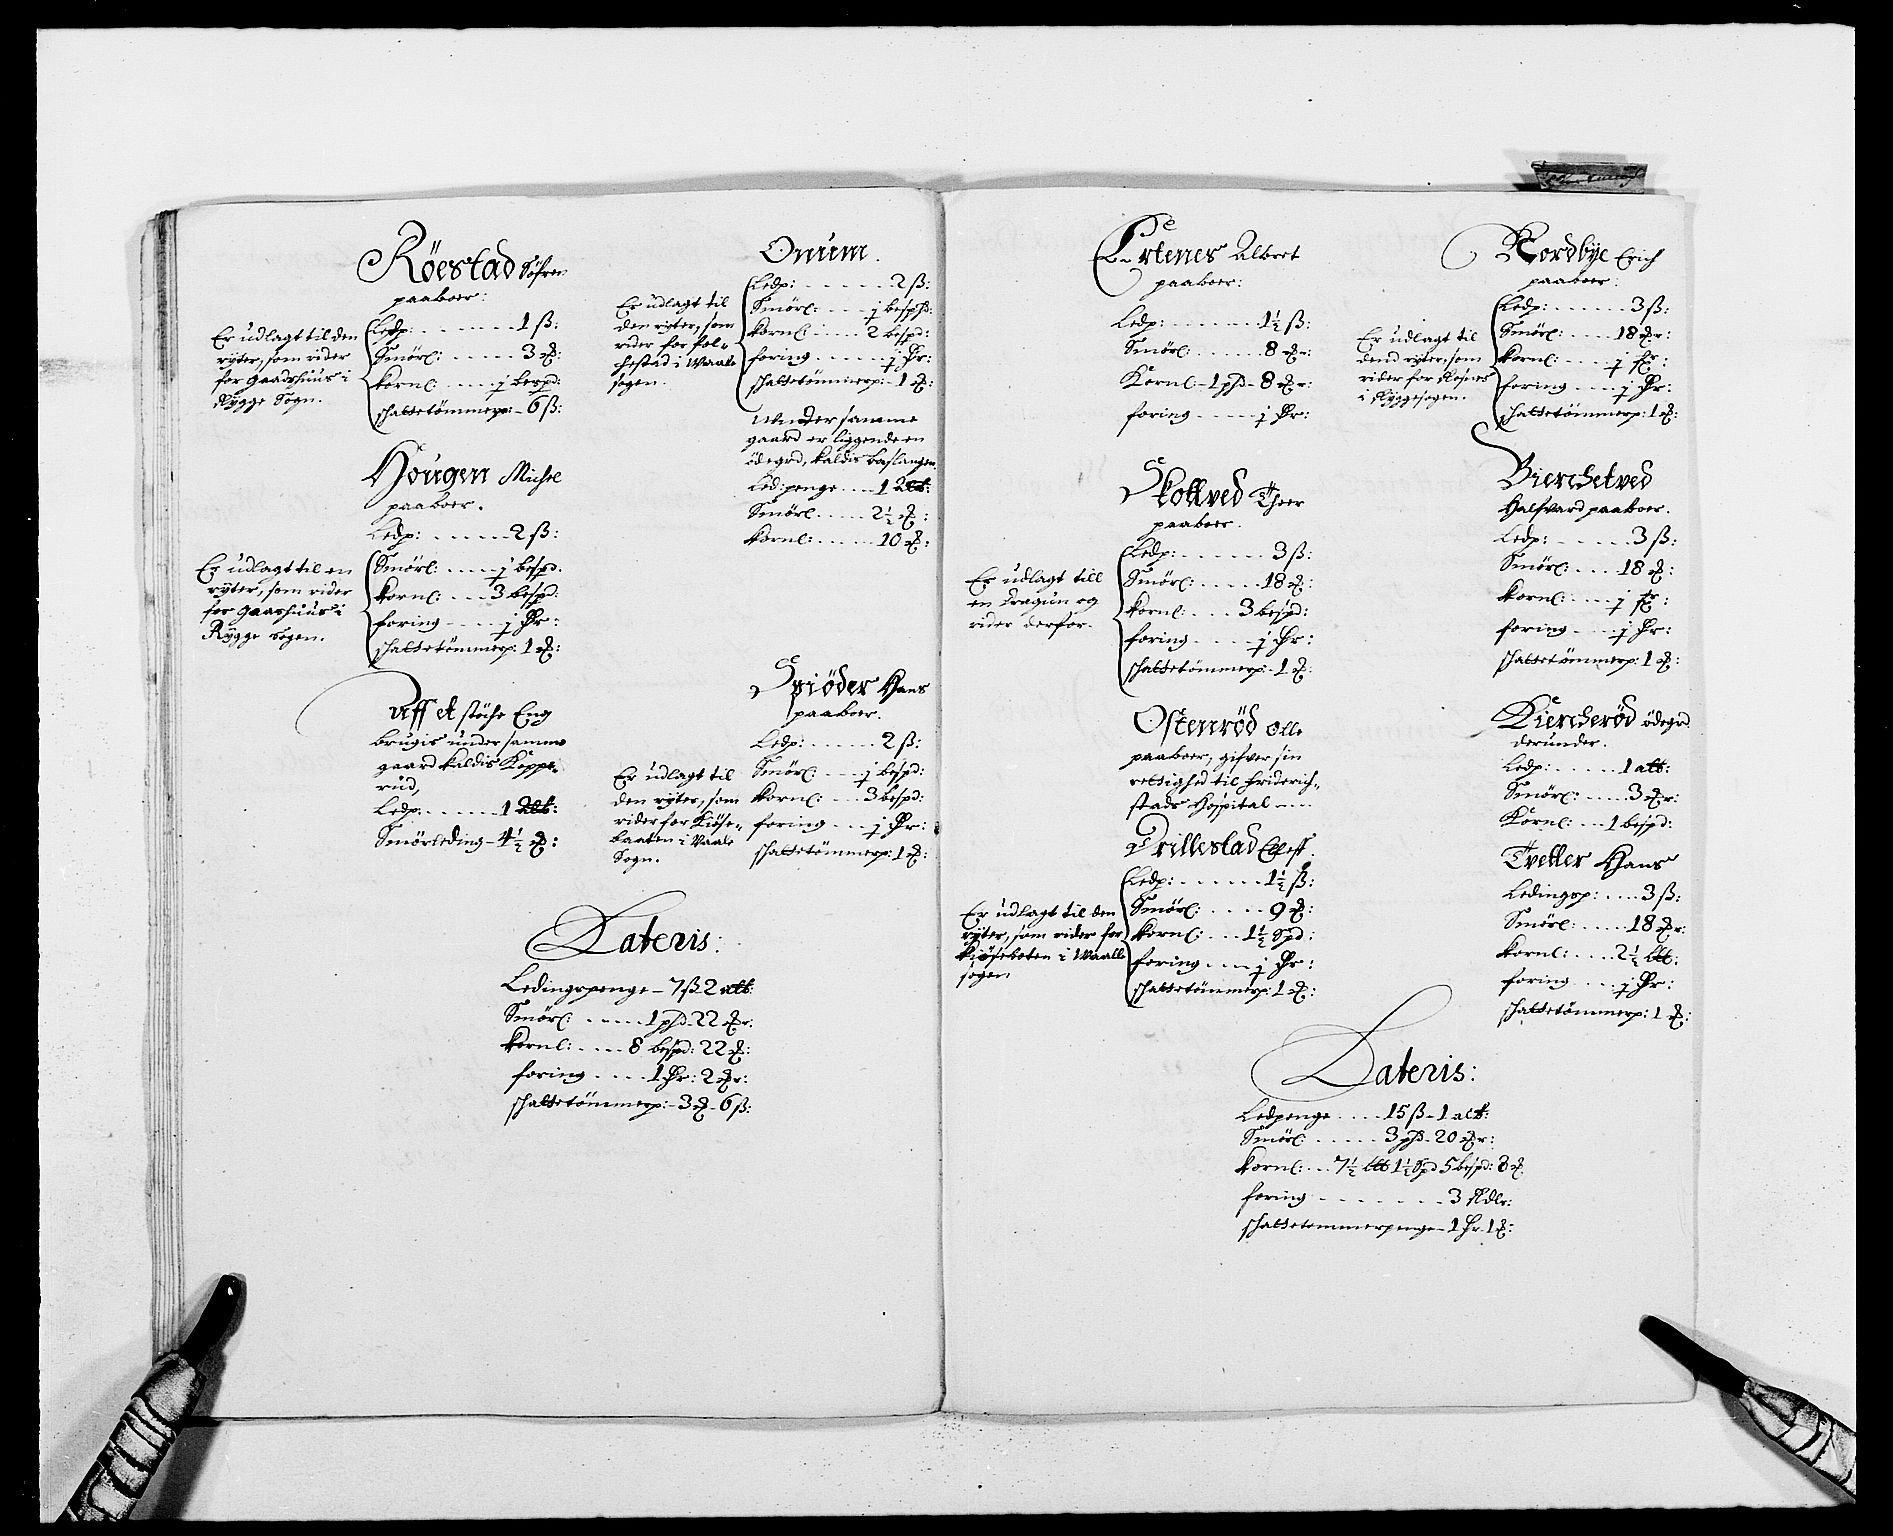 Röestad Söfren
paaboer:
Er udlagt til den
rÿter, som rider
for Gaashuus i
Rÿgge Sogn.
Ledp: 1 ß:
Smörl: 3 ℔:
Kornl: j bespd:
schattetömmerp: 6 ß:
Hougen Michel
paaboer.
Ledp: 2 ß:
Er udlagt til en
rÿter, som rider
for Gaashuus i
Rÿgge Sogen.
Smörl: j bespd.
Kornl: 3 bespd:
foring j Ꝑr:
schattetömmerp: 1 ℔:
Uff et stöche Eng
brugis under samme
gaard kaldis Koppe-
rud,
Ledp: 1 alb:
Smörleding - 4½ ℔:
Onum.
Er udlagt til
den rÿter, som
rider for Fol-
chestad i Waale
sogen.
Ledp: 2 ß:
Smörl: j bespd:
Kornl: 2 bespd:
foring j Ꝑr:
schattetömmerp: 1 ℔:
Under samme
gaard er liggende en
ödegrd, kaldis Baslangen
Led:penge 1 alb:
Smörl 2½ ℔:
Kornl: 10 ℔:
Spiöder Hans
paaboer.
Ledp: 2 ß:
Er udlagt til
den rÿter, som
rider for Kiöse-
baaten i Vaale
Sogn.
Smörl: j bespd:
Kornl: 3 bespd:
foring j Ꝑr:
schattetömmerp: 1 ℔:
Lateris:
Ledingspenge - 7 ß 2 alb:
Smörl: 1 pHd 22 ℔r:
Kornl: 8 bespd: 22 ℔:
foring 1 Ꝑr: 2 ℔r:
schattetömmerp: - 3 ℔ - 6 ß:
Ertenes Albert
paaboer:
Ledp: 1½ ß:
Smörl: 8 ℔r:
Kornl - 1 pHd - 8 ℔r:
foring j Ꝑr:
Skollved Thoer
paaboer.
Er udlagt till
en dragun og
rider derfor.
Ledp: 3 ß:
Smörl: 18 ℔:
Kornl: 3 bespd:
foring j Ꝑr:
schattetömmerp: 1 ℔:
Ostenröd Olle
paaboer, gifver sin
rettighed til Friderich-
stads Hospital
Trillestad Elleff.
Er udlagt til den
rÿter, som rider for
Kiösebaten i Waalle
sogen.
Ledp: 1½ ß:
Smörl: 9 ℔:
Kornl: 1½ Spd:
foring j Ꝑr:
schattetömmerp: 1 ℔:
Nordbÿe Erich
paaboer:
Er udlagt til
dend rÿter, som
rider for Rosnes
i Rÿggesogen.
Ledp: 3 ß:
Smörl: 18 ℔r:
Kornl: j
foring j Ꝑr:
schattetömmerp: 1 ℔:
Bierchetved
Halfvard paaboer.
Ledp: 3 ß:
Smörl: 18 ℔:
Kornl: j
foring j Ꝑr:
schattetömmerp: 1 ℔:
Kiercheröd ödegrd
derunder.
Ledp: 1 alb:
Smörl: 3 ℔r:
Kornl: 1 bespd:
Tvetter Hans
Ledingsp: 3 ß:
Smörl: 18 ℔r:
Kornl: 2½
foring j Ꝑr:
schattetömmerp: 1 ℔:
Lateris:
Ledpenge 15 ß - 1 alb:
Smörl: 3 pHd - 20 ℔r:
Kornl: 7½ 1½ Spd 5 bespd: 8 ℔:
foring 3 Rdlr:
schattetommerpenge - 1 Ꝑr 1 ℔: